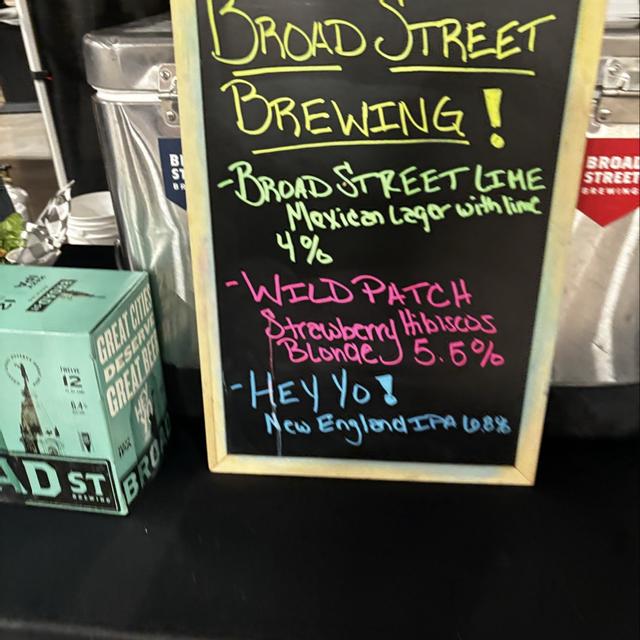 BROAD STREET
BREWING!
-BROAD STREET LIME
Mexican Lager with lime
4%
-WILD PATCH
Strewberry Hibiscos
Blonde 5.5%
-HEY YO!
New England IPA 6.8%
BROAD
STREET
BREWING
GREAT CITIES
DESERVE
GREAT BEER
TWELVE
12
AD ST
BREWING
BROA